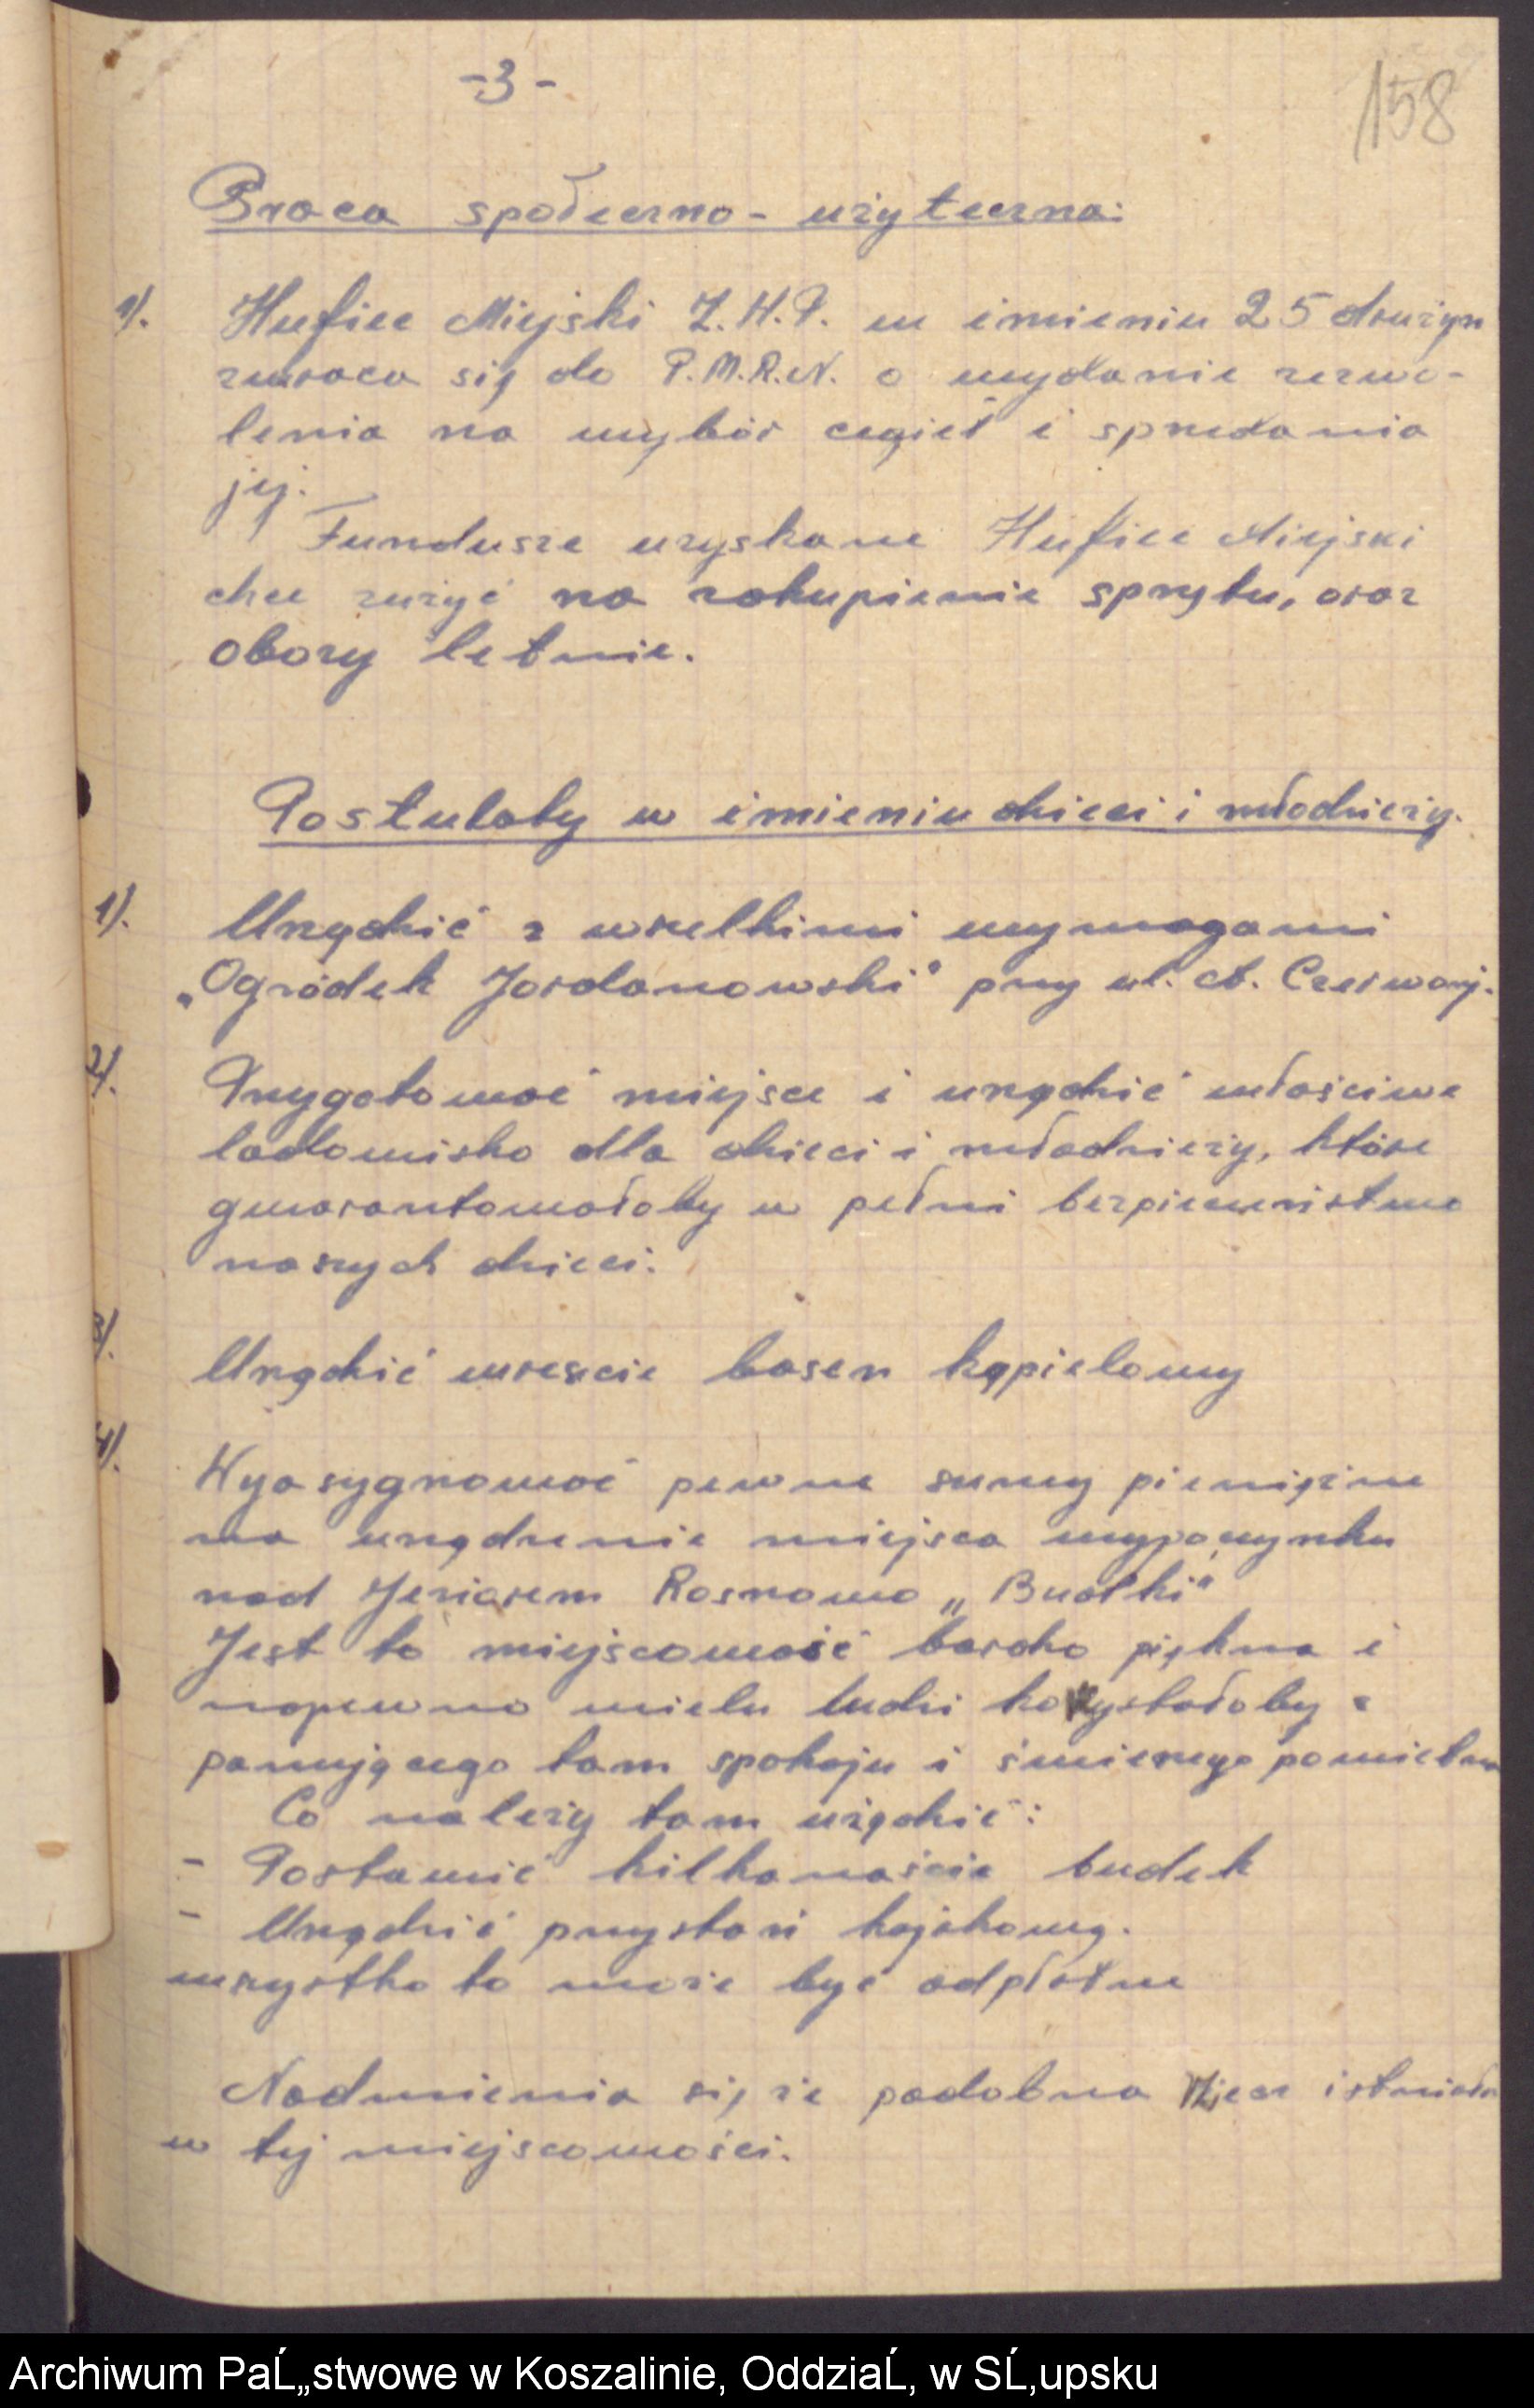 -3-
158
Praca społeczno-użyteczna:
1/. Hufiec Miejski Z.H.P. w imieniu 25 drużyn
zwraca się do P.M.R.N. o wydanie zezwo-
lenia na wybór cegieł i sprzedania
jej.
Fundusze uzyskane Hufiec Miejski
chce zużyć na zakupienie sprzętu, oraz
obozy letnie.
Postulaty w imieniu dzieci i młodzieży.
1/. Urządzić z wszelkimi wymogami
„Ogródek Jordanowski" przy ul. A. Czerwonej.
2/. Przygotować miejsce i urządzić właściwe
lodowisko dla dzieci i młodzieży, które
gwarantowałoby w pełni bezpieczeństwo
naszych dzieci.
3/. Urządzić wreszcie basen kąpielowy
4/. Wyasygnować pewne sumy pieniężne
na urządzenie miejsca wypoczynku
nad Jeziorem Rosnowo „Budki"
Jest to miejscowość bardzo piękna i
napewno wielu ludzi korzystałoby z
panującego tam spokoju i świeżego powietrza
Co należy tam urządzić:
- Postawić kilkanaście budek
- Urządzić przystań kajakową.
wszystko to może być odpłatne
Nadmienia się że podobna rzecz istniała
w tej miejscowości.
Archiwum PaĹ„stwowe w Koszalinie, OddziaĹ‚ w SĹ‚upsku